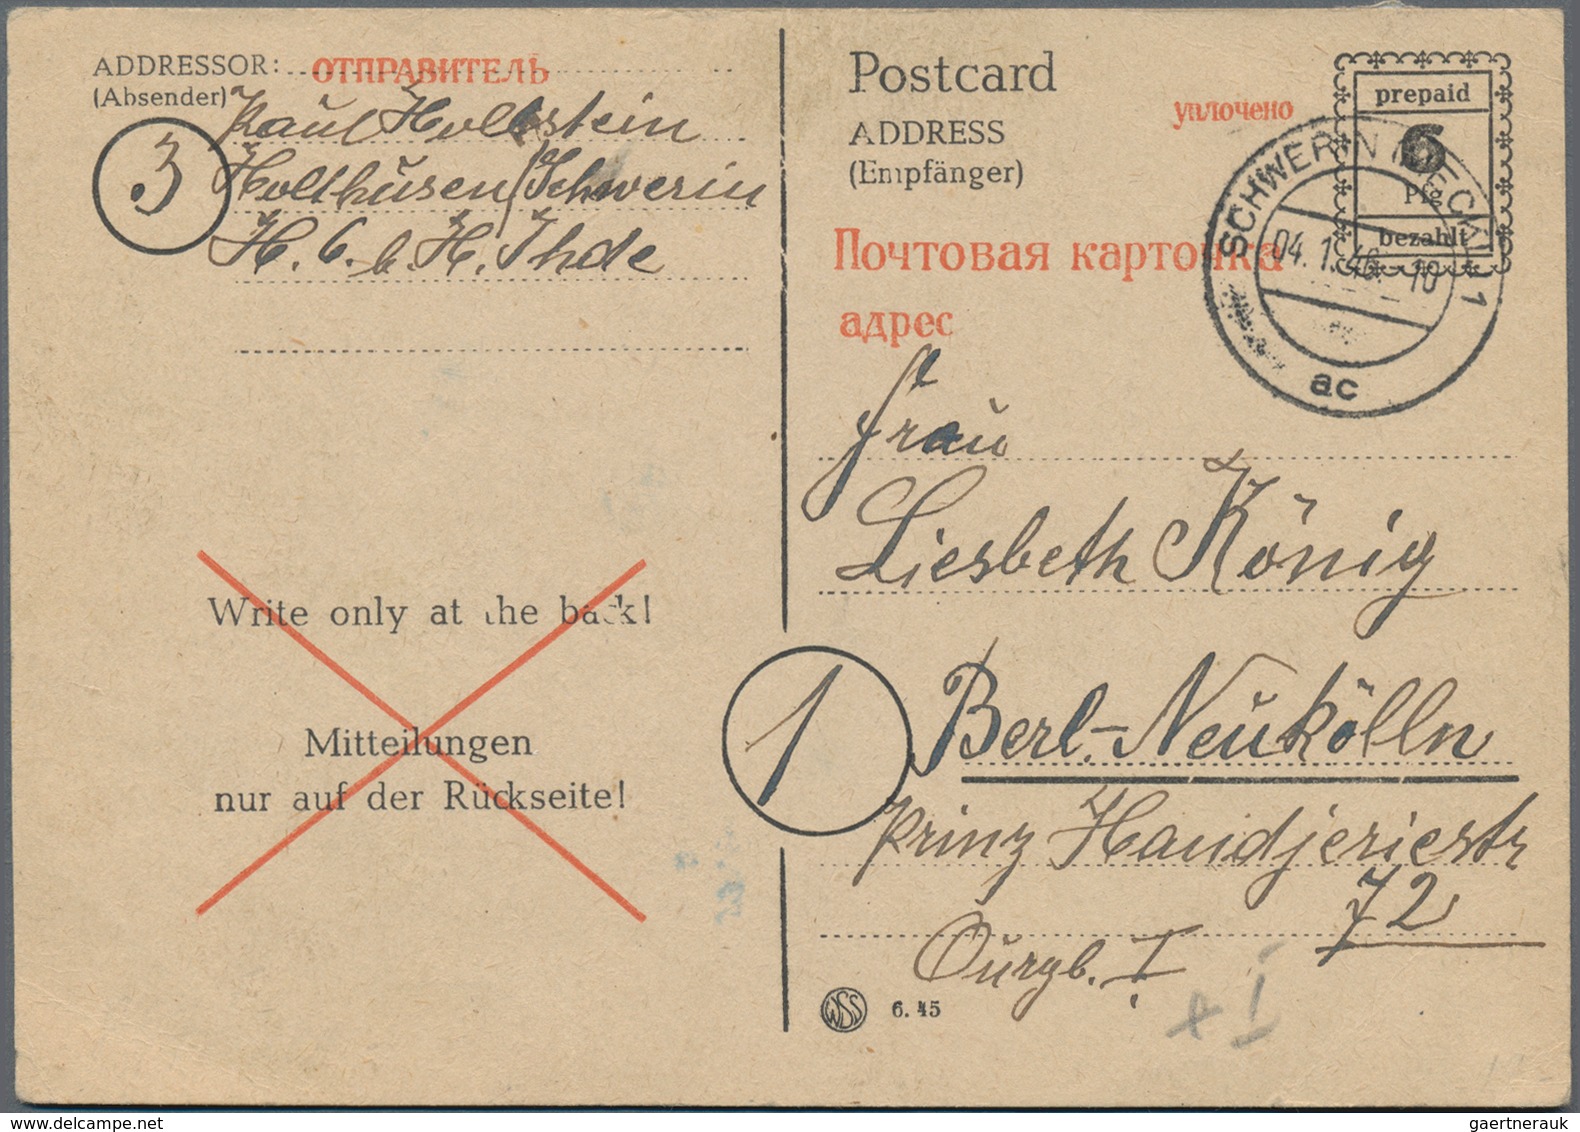 ADDRESSOR: ОТПРАВИТЕЛЬ
(Absender)
Paul Hollstein
Holthusen/Schwerin
H. 6. b. H. Ihde
3
Write only at the back!
Mitteilungen
nur auf der Rückseite!
Postcard
ADDRESS
(Empfänger)
уплочено
prepaid
6
Pfg
bezahlt
SCHWERIN (MECKL) 1
04. 1. 46. - 10
ac
Почтовая карточка
адрес
Frau
Liesbeth König
1
Berl.-Neukölln
Prinz Handjeriestr
72
I
WSS 6. 45
x I
gaertnerauk@delcampe.net